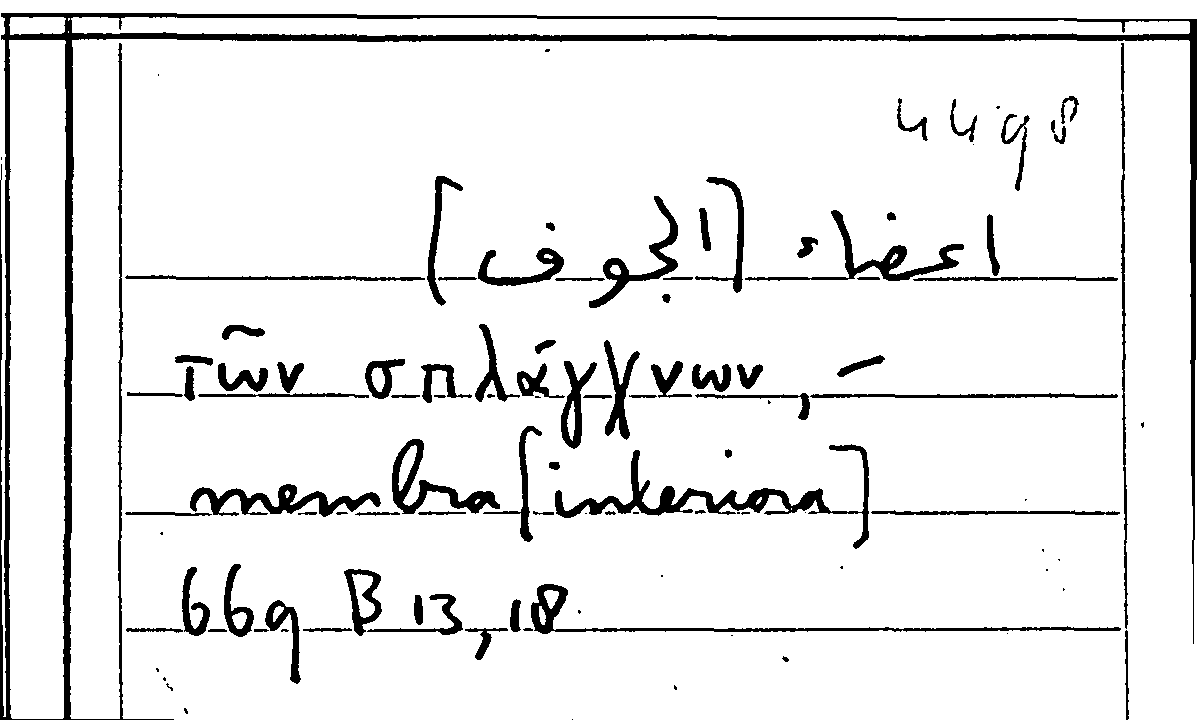 4498
اعضاء [الجوف]
τῶν σπλάγχνων, –
membra [interiora]
669 B 13, 18